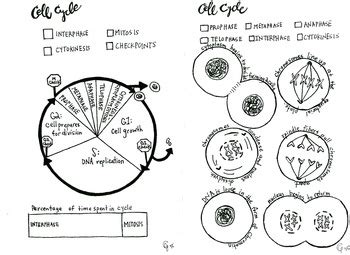 Cell Cycle
INTERPHASE
MITOSIS
CYTOKINESIS
CHECKPOINTS
PROPHASE
METAPHASE
ANAPHASE
TELOPHASE
CYTOKINESIS
G2:
cell prepares
for division
G1:
Cell growth
S:
DNA replication
Percentage of time spent in cycle
INTERPHASE
MITOSIS
Cell Cycle
PROPHASE
METAPHASE
ANAPHASE
TELOPHASE
INTERPHASE
CYTOKINESIS
cytoplasm begins to
Chromosomes line up at the
Chromosomes condense and nuclear
spindle fibers pull chromosomes
DNA is loose in the form of chromatin
nucleus begins to reform